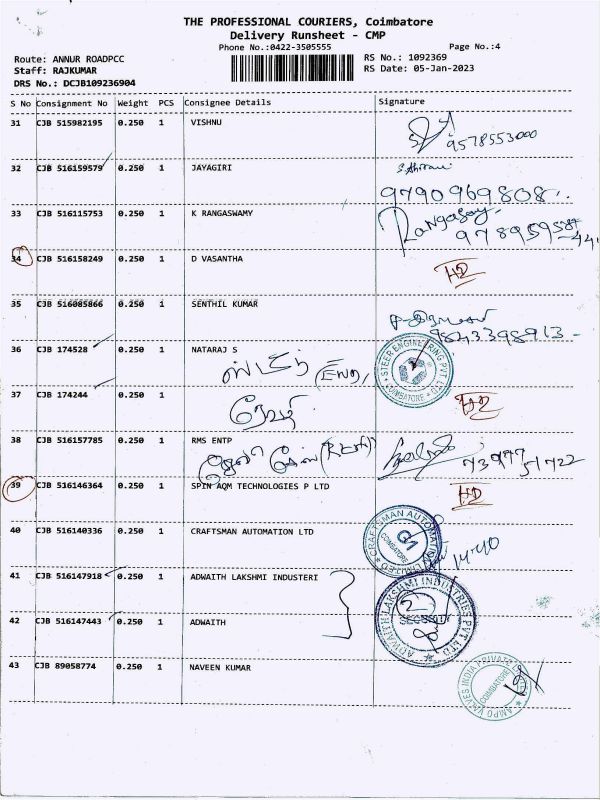 THE PROFESSIONAL COURIERS, Coimbatore
Delivery Runsheet - CMP
Phone No.:0422-3505555 Page No.:4
Route: ANNUR ROADPCC RS No.: 1092369
Staff: RAJKUMAR RS Date: 05-Jan-2023
DRS No.: DCJB109236904
S No Consignment No Weight PCS Consignee Details Signature
31 CJB 515982195 0.250 1 VISHNU
9578553000
32 CJB 516159579 0.250 1 JAYAGIRI
9790969808
33 CJB 516115753 0.250 1 K RANGASWAMY Rangasay
34 CJB 516158249 0.250 1 D VASANTHA HD
35 CJB 516085866 0.250 1 SENTHIL KUMAR
9843398913
36 CJB 174528 0.250 1 NATARAJ S
STEER ENGINEERING PVT LTD COIMBATORE
37 CJB 174244 0.250 1 HD
38 CJB 516157785 0.250 1 RMS ENTP
39 CJB 516146364 0.250 1 SPIN AQM TECHNOLOGIES P LTD HD
40 CJB 516140336 0.250 1 CRAFTSMAN AUTOMATION LTD
CRAFTSMAN AUTOMATION LIMITED COIMBATORE G1
14:40
41 CJB 516147918 0.250 1 ADWAITH LAKSHMI INDUSTERI
ADWAITH LAKSHMI INDUSTRIES PVT LTD
42 CJB 516147443 0.250 1 ADWAITH
43 CJB 89058774 0.250 1 NAVEEN KUMAR
AMPO VALVES INDIA PRIVATE LIMITED COIMBATORE